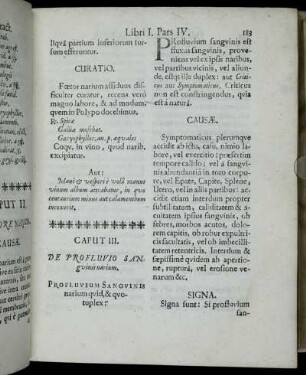 Libri I. Pars IV. 183
liqvâ partium inferiorum sur-
sum efferuntur.
CURATIO.
Fœtor narium assiduus dif-
ficulter curatur, recens verò
magno labore, & ad modum,
quem in Polypo docebimus.
℞. Spicæ
Galliæ moschat.
Garyophyllor. an. p. æquales
Coqv. in vino, quod narib.
excipiatur.
Aut:
Mane & vesperè volâ manus
vinum album attrahatur, in quo
CAPUT III.
DE PROFLUVIO SAN-
gvinis narium.
PROFLUVIUM SANGVINIS
narium quid, & quo-
tuplex?
PRofluvium sangvinis est
fluxus sangvinis, prove-
niens vel ex ipsis naribus,
vel partibus vicinis, vel aliun-
de, estqs illo duplex: aut Criti-
cum aut Symptomaticum. Criticus
non est constringendus, quia
est à naturâ.
CAUSÆ.
Symptomaticus plerumqve
accidit ab ictu, casu, nimio la-
bore, vel exercitio; præsertim
tempore calido; vel à sangvi-
nis abundantiâ in toto corpo-
re, vel Epate, Capite, Splene,
Utero, vel in aliis partibus in-
terioribus, aut propter malitiam,
caliditatem, & subtilita-
tem, & substantiam corru-
ptam ipsius sangvinis, ob
febres, morbos acutos, dolo-
rem capitis, ob robur expultri-
cis facultatis, vel ob imbecilli-
tatem retentricis. Interdum &
sæpissimè qvidem ab apertio-
ne, rupturâ, vel erosione ve-
narum &c.
SIGNA.
Signa sunt: Si profluvium
san-